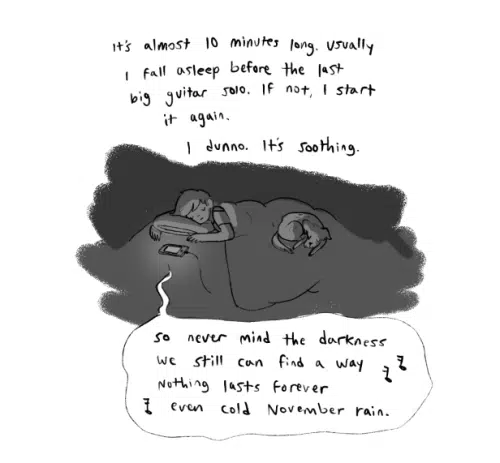 It's almost 10 minutes long. Usually
I fall asleep before the last
big guitar solo. If not, I start
it again.
I dunno. It's soothing.
so never mind the darkness
we still can find a way
Nothing lasts forever
even cold November rain.